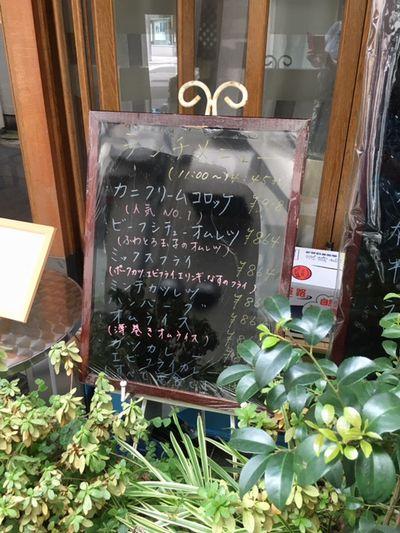 ランチメニュー
(11:00〜14:45)
カニクリームコロッケ
(人気 NO.1)
ビーフシチューオムレツ ¥864
(ふわとろ玉子のオムレツ)
ミックスフライ ¥864
(ポークカツ.エビフライ.エリンギ.なすのフライ)
ミンチカツレツ
ハンバーグ
オムライス
(薄巻きオムライス)
カツカレー
エビフライカレー